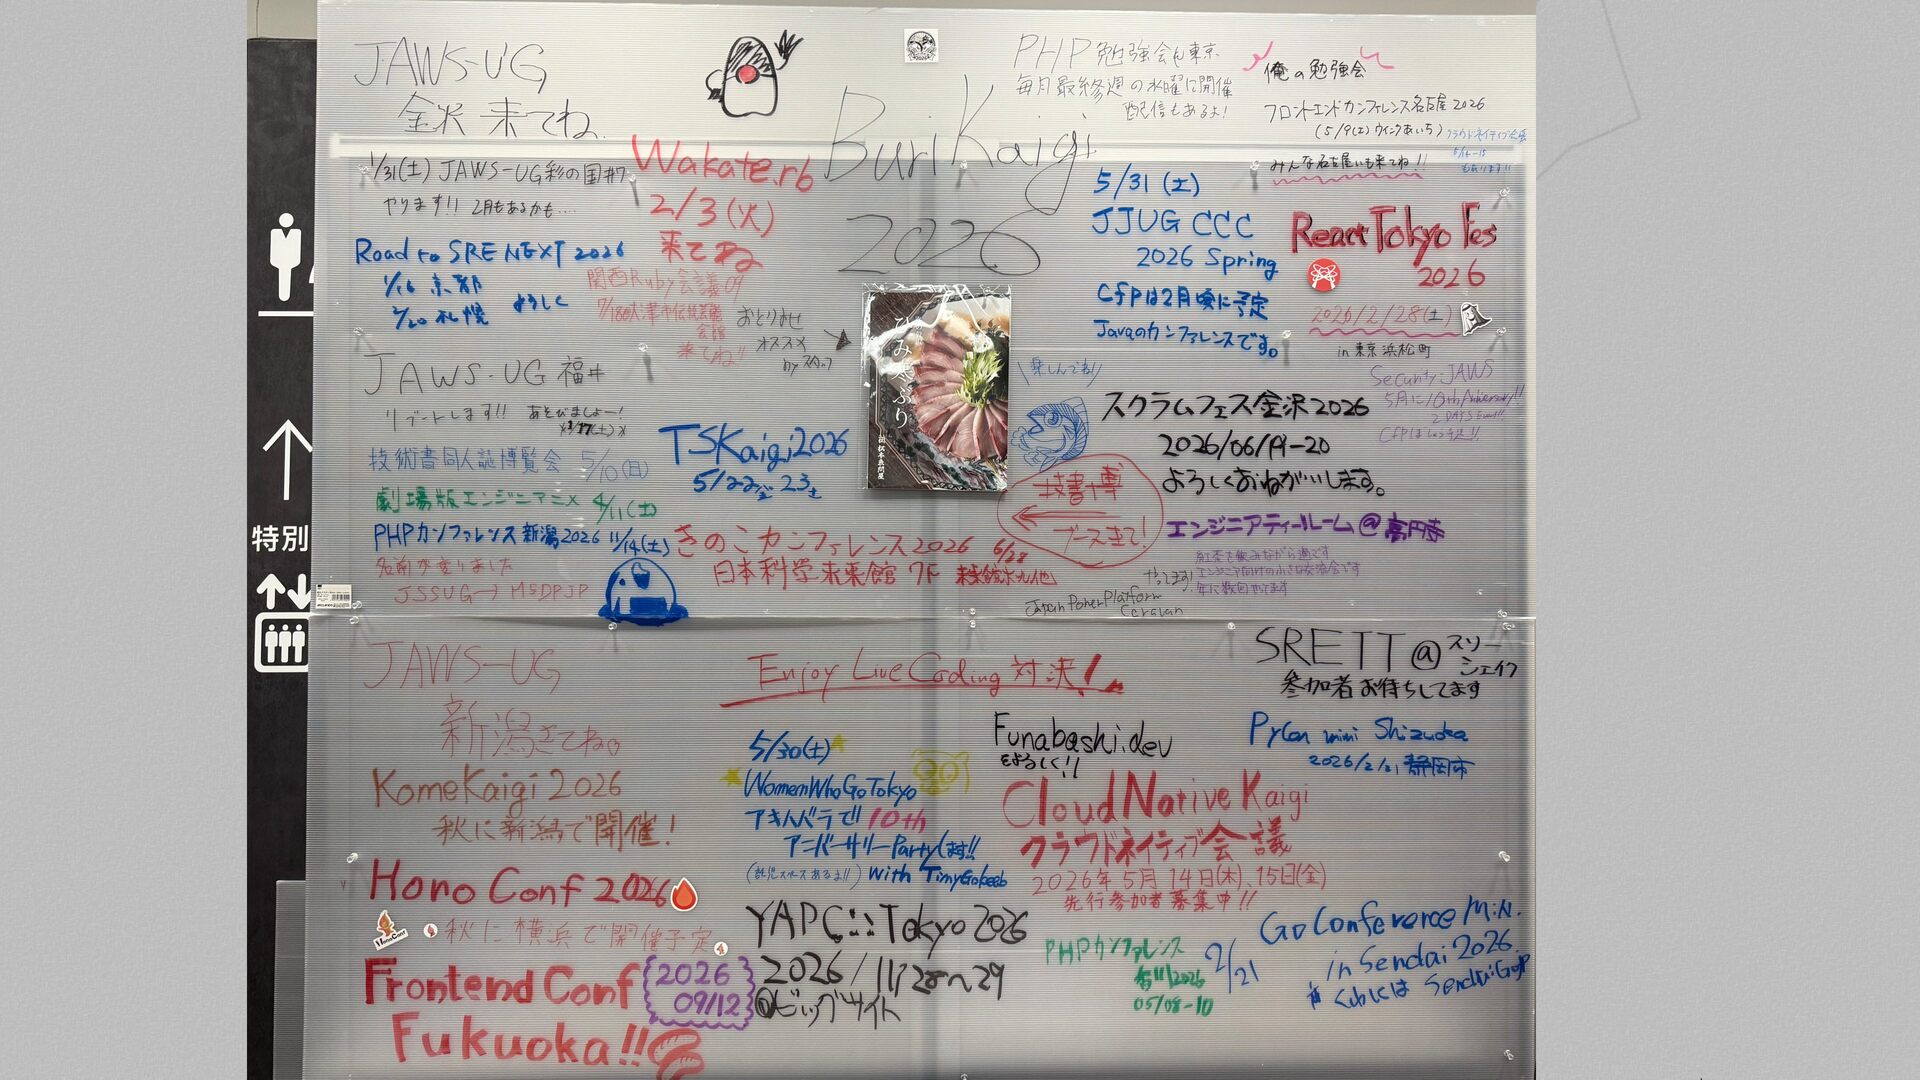 JAWS-UG
金沢 来てね
BuriKaigi
2026
PHP勉強会@東京
毎月最終週の水曜に開催
配信もあるよ!
俺の勉強会
フロントエンドカンファレンス名古屋2026
(5/9(土)ウインクあいち)
クラウドネイティブ会議
5/14-15
もあります!!
みんな名古屋にも来てね!!
1/31(土) JAWS-UG彩の国#7
やります!! 2月もあるかも....
Wakate.rb
2/3(火)
来てね
Road to SRE NEXT 2026
1/16 京都
2/20 札幌
よろしく
関西Ruby会議09
会館
来てね!!
おとりよせ
オススメ
by スタッフ
ひみ寒ぶり
5/31(土)
JJUG CCC
2026 Spring
CfPは2月頃に予定
Javaのカンファレンスです。
React Tokyo Fes
2026
2026/2/28(土)
in 東京 浜松町
Security-JAWS
5月に10th Anniversary!!
2 DAYS Event!!
JAWS-UG 福井
リブートします!! あそびましょー!
技術書同人誌博覧会 5/10(日)
劇場版エンジニアニメ 4/11(土)
PHPカンファレンス新潟2026 11/14(土)
名前が変わりました
JSSUG→MSDPJP
TSKaigi2026
5/22金 23土
\楽しんでね!/
スクラムフェス金沢2026
2026/06/19-20
よろしくおねがいします。
技書博
ブース来て!
エンジニアティールーム@高円寺
紅茶を飲みながら過ごす
エンジニア向けの小さな交流会です
年に数回やってます
やってます!
Japan Power Platform
Caravan
きのこカンファレンス2026 6/28
日本科学未来館 7F
特別
JAWS-UG
新潟きてね
Enjoy Live Coding 対決!
SRETT@スリーシェイク
参加者お待ちしてます
KomeKaigi 2026
秋に新潟で開催!
5/30(土)
WomenWhoGoTokyo
アキハバラで10th
アニバーサリーPartyします!!
(託児スペースあるよ!!) with TinyGoKeeb
Funabashi.dev
をよろしく!!
PyCon mini Shizuoka
2026/2/21 静岡市
CloudNative Kaigi
クラウドネイティブ会議
2026年5月14日(木),15日(金)
先行参加者募集中!!
Hono Conf 2026
HonoConf
秋に横浜で開催予定
YAPC::Tokyo 2026
2026/11/28~29
@ビッグサイト
PHPカンファレンス
香川2026
05/08-10
2/21
Go Conference Mini.
in Sendai 2026
くわしくは Sendai.Go.jp
Frontend Conf
Fukuoka!!
2026
09/12